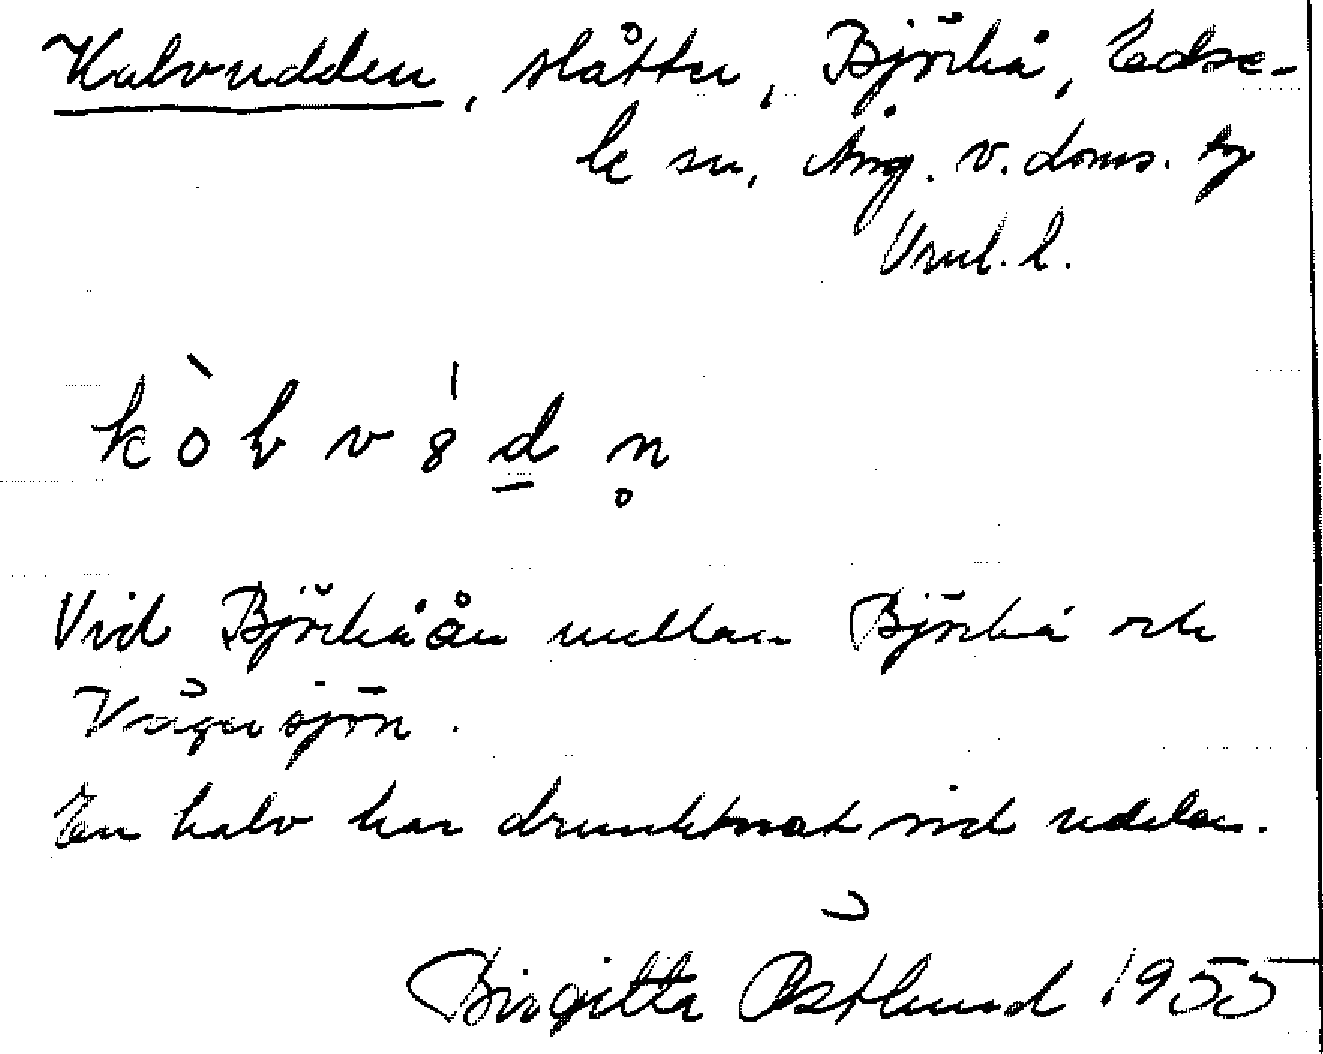 Kalvudden, slåtter, Björkå, Edse-
le sn, Ång. v. doms.
Vrml. l.
Vid Björkåån mellan Björkå och
Vågersjön.
En kalv har drunknat vid udden.
Birgitta Östlund 1955